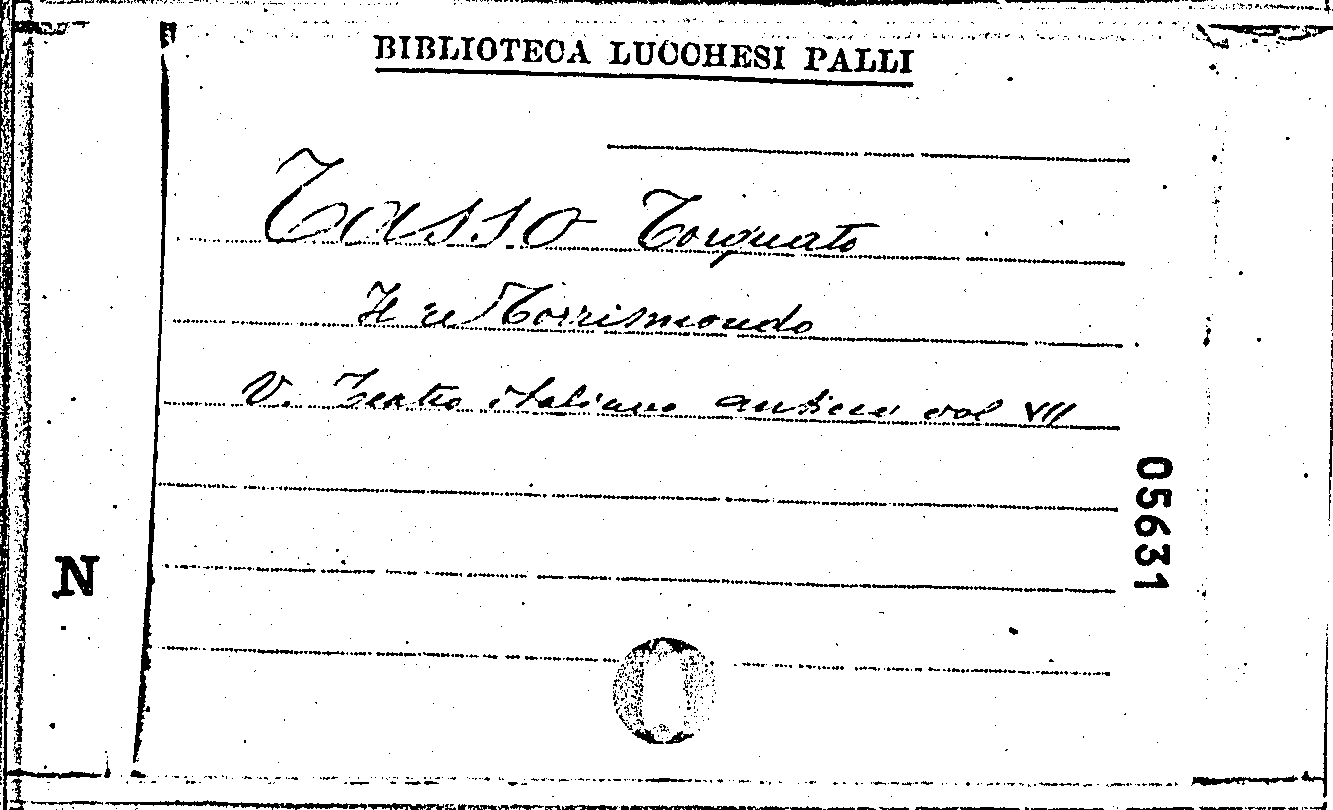 BIBLIOTECA LUCCHESI PALLI
Tasso Torquato
Il re Torrismondo
V. Teatro italiano antico vol VII
05631
N